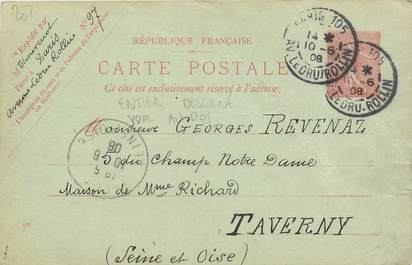 202
Expédié par
M
Demeurant
Paris
avenue Ledru Rollin
N° 97
RÉPUBLIQUE FRANÇAISE
CARTE POSTALE
Ce côté est exclusivement réservé à l'adresse.
PARIS 105
14 *
10 - 6
08
AV. LEDRU-ROLLIN
105
* 6
08
LEDRU-ROLLIN
ENTIER DESSINÉ
VOIR AU DOS
Monsieur GEORGES REVENAZ
5 du Champ Notre Dame
Maison de Mme Richard
TAVERNY
(Seine et Oise)
10 6
08